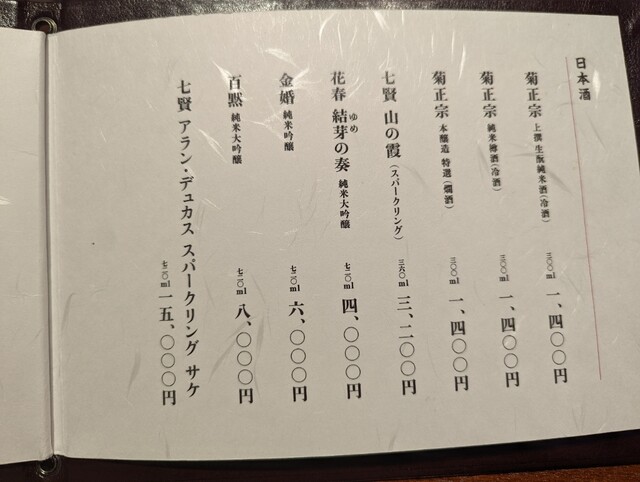 日本酒
菊正宗 上撰 生酛純米酒(冷酒) 三〇〇ml 一、四〇〇円
菊正宗 純米樽酒(冷酒) 三〇〇ml 一、四〇〇円
菊正宗 本醸造 特選(燗酒) 三〇〇ml 一、四〇〇円
七賢 山の霞(スパークリング) 三六〇ml 三、二〇〇円
花春 結芽の奏 純米大吟醸 七二〇ml 四、〇〇〇円
ゆめ
金婚 純米吟醸 七二〇ml 六、〇〇〇円
百黙 純米大吟醸 七二〇ml 八、〇〇〇円
七賢 アラン・デュカス スパークリング サケ
七二〇ml 一五、〇〇〇円